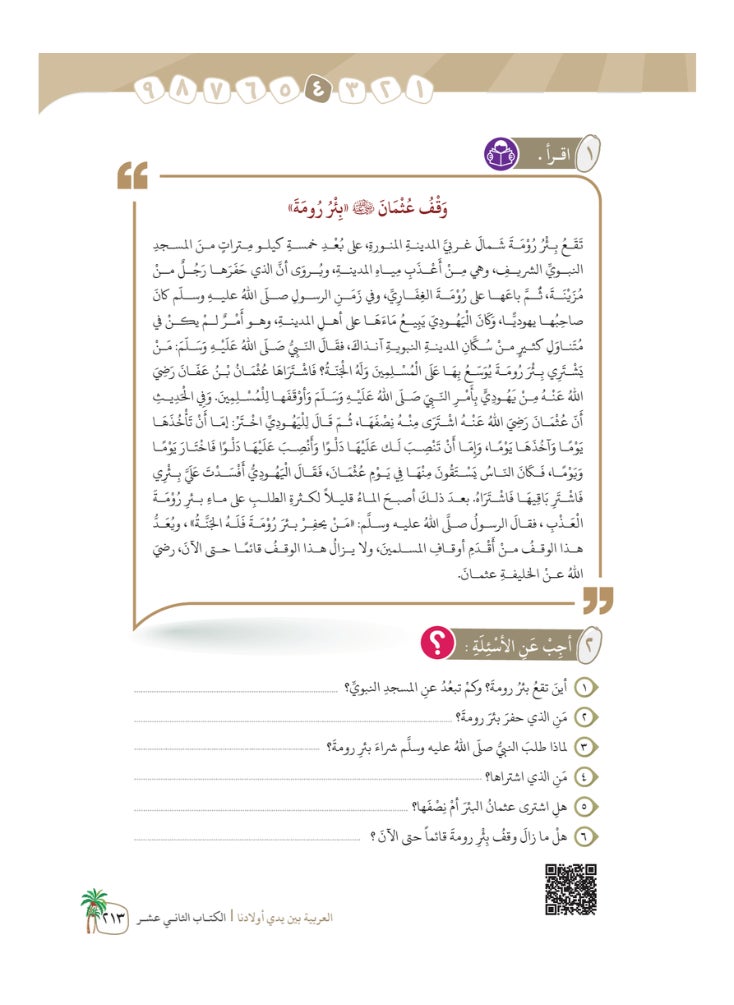 ١ ٢ ٣ ٤ ٥ ٦ ٧ ٨ ٩
١ اقـرأ .
وَقْفُ عُثْمَانَ ﷺ «بِئْرُ رُومَةَ»
تَقَعُ بِئْرُ رُوْمَةَ شَمالَ غربيِّ المدينةِ المنورةِ، على بُعْدِ خمسةِ كيلو مِتراتٍ منَ المسجدِ
النبويِّ الشريفِ، وهي مِنْ أَعْذَبِ مياهِ المدينةِ، ويُروَى أنَّ الذي حَفَرَها رَجُلٌ منْ
مُزَيْنَةَ، ثُمَّ باعَها على رُوْمَةَ الغِفَارِيِّ، وفي زَمَنِ الرسولِ صلّى اللهُ عليهِ وسلّم كانَ
صاحِبُها يهوديًّا، وَكَانَ الْيَهُودِيّ يَبِيعُ مَاءَهَا على أهلِ المدينةِ، وهو أَمْرٌ لمْ يكنْ في
مُتَناوَلِ كثيرٍ منْ سُكَّانِ المدينةِ النبويةِ آنذاكَ، فقَالَ النبِيُّ صَلَّى اللهُ عَلَيْهِ وَسَلَّمَ: مَنْ
يَشْتَرِي بِئْرَ رُومَةَ يُوَسَعُ بِهَا عَلَى الْمُسْلِمِينَ وَلَهُ الْجَنَّةُ؟ فَاشْتَرَاهَا عُثْمَانُ بْنُ عَفَانَ رَضِيَ
اللهُ عَنْهُ مِنْ يَهُودِيٍّ بِأَمْرِ النبِيِّ صَلَّى اللهُ عَلَيْهِ وَسَلَّمَ وَأَوْقَفَها لِلْمُسْلِمِينَ. وَفِي الْحَدِيثِ
أَنَّ عُثْمَانَ رَضِيَ اللهُ عَنْهُ اشْتَرَى مِنْهُ نِصْفَهَا، ثُمَّ قَالَ لِلْيَهُودِيِّ اخْتَرْ: إمَا أَنْ تَأْخُذَهَا
يَوْمًا وَآخُذَهَا يَوْمًا، وَإمَا أَنْ تَنْصِبَ لَك عَلَيْهَا دَلْوًا وَأَنْصِبَ عَلَيْهَا دَلْوًا فَاخْتَارَ يَوْمًا
وَيَوْمًا، فَكَانَ النَاسُ يَسْتَقُونَ مِنْهَا فِي يَوْمِ عُثْمَانَ، فَقَالَ الْيَهُودِيُّ أَفْسَدْتَ عَلَيَّ بِئْرِي
فَاشْتَرِ بَاقِيهَا فَاشْتَرَاهُ. بعدَ ذلكَ أصبحَ الماءُ قليلاً لكثرةِ الطلبِ على ماءِ بئرِ رُوْمَةَ
الْعَذْبِ ، فقالَ الرسولُ صلَّى اللهُ عليه وسلَّم: «مَنْ يحفِرْ بئرَ رُوْمَةَ فَلَهُ الجَنَّةُ» ، ويُعَدُّ
هذا الوقفُ منْ أَقْدَمِ أوقافِ المسلمينَ، ولا يزالُ هذا الوقفُ قائمًا حتى الآنَ، رضيَ
اللهُ عنْ الخليفةِ عثمانَ.
٢ أجِبْ عَنِ الأَسْئِلَةِ :
١ أينَ تقعُ بئرُ رومةَ؟ وكمْ تبعُدُ عنِ المسجدِ النبويِّ؟
٢ مَنِ الذي حفرَ بئرَ رومةَ؟
٣ لماذا طلبَ النبيُّ صلّى اللهُ عليه وسلَّم شراءَ بئرِ رومةَ؟
٤ مَنِ الذي اشتراها؟
٥ هلِ اشترى عثمانُ البئرَ أمْ نِصْفَها؟
٦ هلْ ما زالَ وقفُ بِئْرِ رومةَ قائماً حتى الآنَ ؟
العربية بين يدي أولادنا | الكتـاب الثانـي عشـر ٢١٣